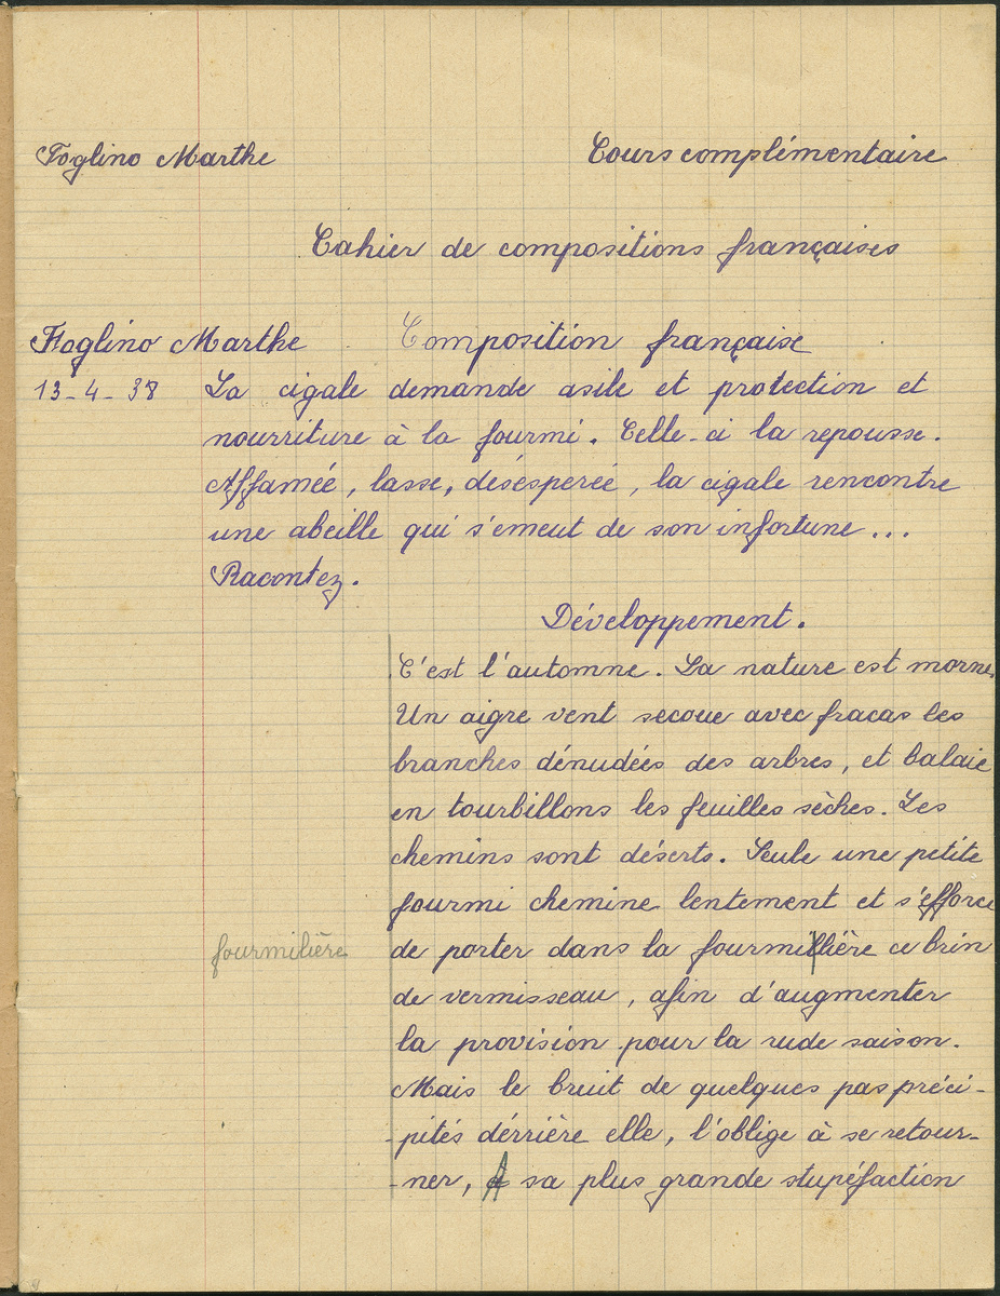 Foglino Marthe
Cours complémentaire
Cahier de compositions françaises
Foglino Marthe
Composition française
13-4-38
La cigale demande asile et protection et
nourriture à la fourmi. Celle-ci la repousse.
Affamée, lasse, désespérée, la cigale rencontre
une abeille qui s'émeut de son infortune...
Racontez.
Développement.
C'est l'automne. La nature est morne.
Un aigre vent secoue avec fracas les
branches dénudées des arbres, et balaie
en tourbillons les feuilles sèches. Les
chemins sont déserts. Seule une petite
fourmi chemine lentement et s'efforce
fourmilière
de porter dans la fourmillière ce brin
de vermisseau, afin d'augmenter
la provision pour la rude saison.
Mais le bruit de quelques pas préci-
-pités dérrière elle, l'oblige à se retour-
-ner, A sa plus grande stupéfaction